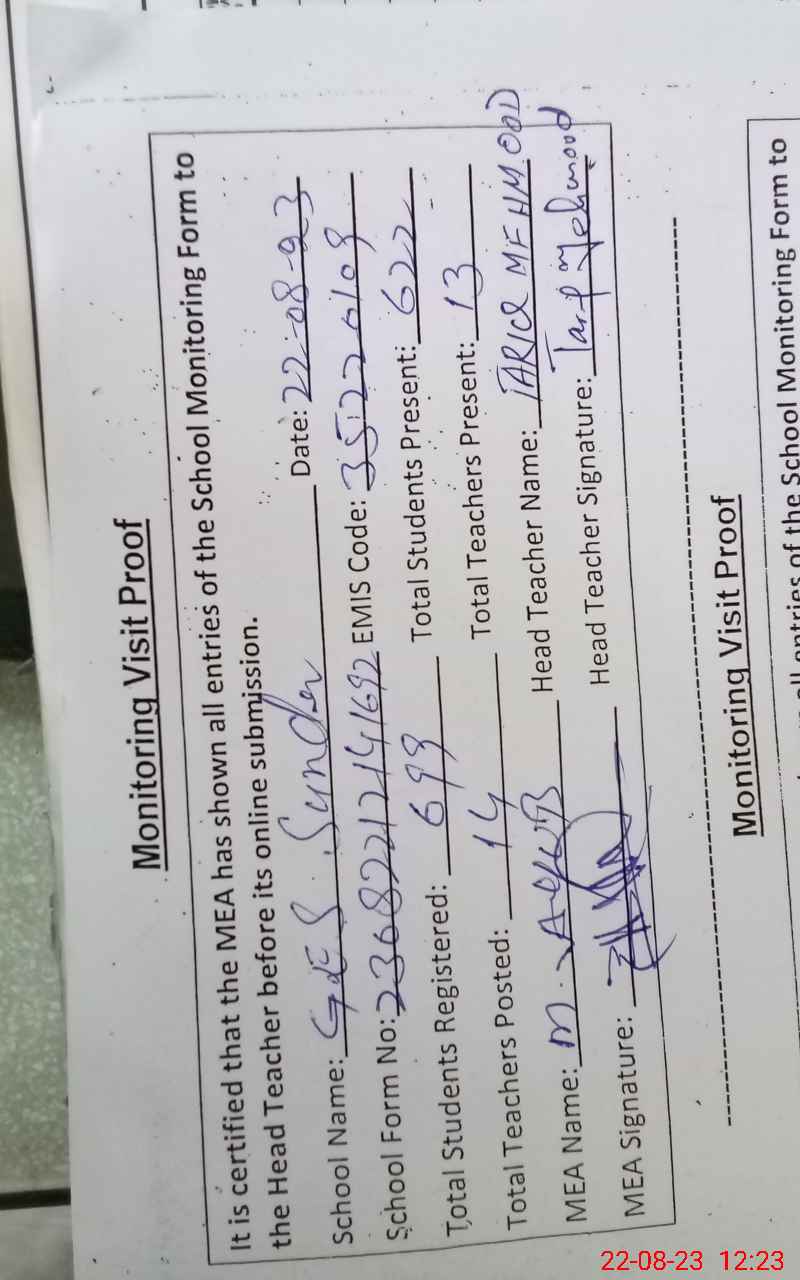 Monitoring Visit Proof
It is certified that the MEA has shown all entries of the School Monitoring Form to
the Head Teacher before its online submission.
School Name: GES Sunder Date: 22-08-23
School Form No: 23682212141692 EMIS Code: 35220109
Total Students Registered: 699 Total Students Present: 622
Total Teachers Posted: 14 Total Teachers Present: 13
MEA Name: M. Head Teacher Name: TARIQ MEHMOOD
MEA Signature: Head Teacher Signature: Tariq Mehmood
Monitoring Visit Proof
all entries of the School Monitoring Form to
22-08-23 12:23